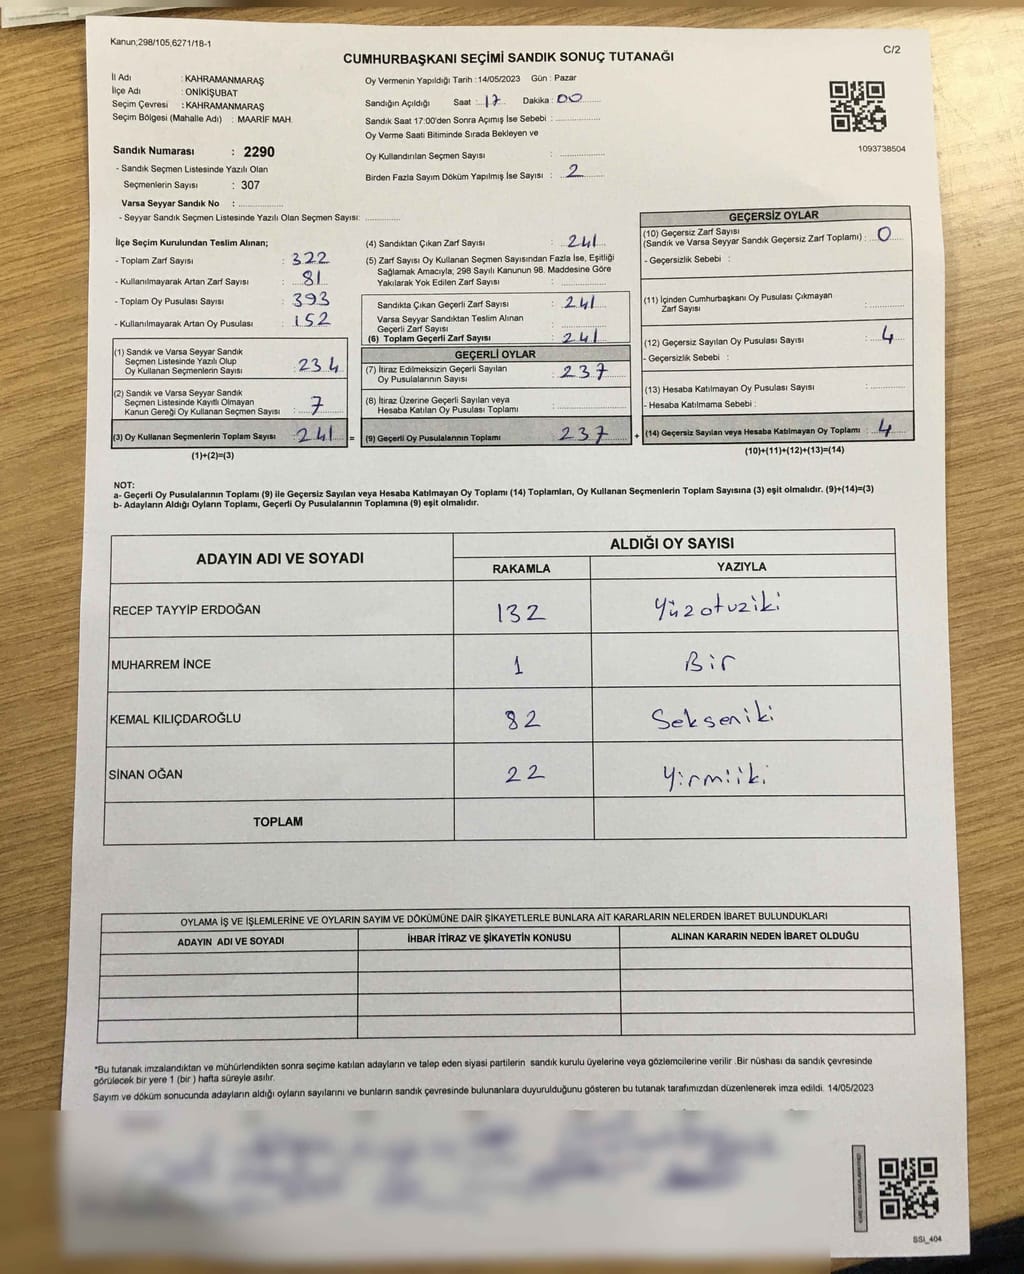 Kanun;298/105,6271/18-1
C/2
CUMHURBAŞKANI SEÇİMİ SANDIK SONUÇ TUTANAĞI
İl Adı : KAHRAMANMARAŞ
İlçe Adı : ONİKİŞUBAT
Seçim Çevresi : KAHRAMANMARAŞ
Seçim Bölgesi (Mahalle Adı) : MAARİF MAH.
Sandık Numarası : 2290
- Sandık Seçmen Listesinde Yazılı Olan
Seçmenlerin Sayısı : 307
Varsa Seyyar Sandık No : ..............
- Seyyar Sandık Seçmen Listesinde Yazılı Olan Seçmen Sayısı: ............
Oy Vermenin Yapıldığı Tarih :14/05/2023 Gün : Pazar
Sandığın Açıldığı Saat : 17 Dakika : 00
Sandık Saat 17:00'den Sonra Açımış İse Sebebi : ..............
Oy Verme Saati Bitiminde Sırada Bekleyen ve
Oy Kullandırılan Seçmen Sayısı : ..............
Birden Fazla Sayım Döküm Yapılmış İse Sayısı : 2
1093738504
İlçe Seçim Kurulundan Teslim Alınan;
- Toplam Zarf Sayısı : 322
- Kullanılmayarak Artan Zarf Sayısı : 81
- Toplam Oy Pusulası Sayısı : 393
- Kullanılmayarak Artan Oy Pusulası : 152
(1) Sandık ve Varsa Seyyar Sandık
Seçmen Listesinde Yazılı Olup
Oy Kullanan Seçmenlerin Sayısı : 234
(2) Sandık ve Varsa Seyyar Sandık
Seçmen Listesinde Kayıtlı Olmayan
Kanun Gereği Oy Kullanan Seçmen Sayısı : 7
(3) Oy Kullanan Seçmenlerin Toplam Sayısı : 241 =
(1)+(2)=(3)
(4) Sandıktan Çıkan Zarf Sayısı : 241
(5) Zarf Sayısı Oy Kullanan Seçmen Sayısından Fazla İse, Eşitliği
Sağlamak Amacıyla; 298 Sayılı Kanunun 98. Maddesine Göre
Yakılarak Yok Edilen Zarf Sayısı : ..............
Sandıkta Çıkan Geçerli Zarf Sayısı : 241
Varsa Seyyar Sandıktan Teslim Alınan
Geçerli Zarf Sayısı : ..............
(6) Toplam Geçerli Zarf Sayısı : 241
GEÇERLİ OYLAR
(7) İtiraz Edilmeksizin Geçerli Sayılan
Oy Pusulalarının Sayısı : 237
(8) İtiraz Üzerine Geçerli Sayılan veya
Hesaba Katılan Oy Pusulası Toplamı : ..............
(9) Geçerli Oy Pusulalarının Toplamı 237 +
GEÇERSİZ OYLAR
(10) Geçersiz Zarf Sayısı
(Sandık ve Varsa Seyyar Sandık Geçersiz Zarf Toplamı) : 0
- Geçersizlik Sebebi :
(11) İçinden Cumhurbaşkanı Oy Pusulası Çıkmayan
Zarf Sayısı : ............
(12) Geçersiz Sayılan Oy Pusulası Sayısı : 4
- Geçersizlik Sebebi :
(13) Hesaba Katılmayan Oy Pusulası Sayısı : ............
- Hesaba Katılmama Sebebi :
(14) Geçersiz Sayılan veya Hesaba Katılmayan Oy Toplamı : 4
(10)+(11)+(12)+(13)=(14)
NOT:
a- Geçerli Oy Pusulalarının Toplamı (9) ile Geçersiz Sayılan veya Hesaba Katılmayan Oy Toplamı (14) Toplamları, Oy Kullanan Seçmenlerin Toplam Sayısına (3) eşit olmalıdır. (9)+(14)=(3)
b- Adayların Aldığı Oyların Toplamı, Geçerli Oy Pusulalarının Toplamına (9) eşit olmalıdır.
ADAYIN ADI VE SOYADI ALDIĞI OY SAYISI
RAKAMLA YAZIYLA
RECEP TAYYİP ERDOĞAN 132 Yüzotuziki
MUHARREM İNCE 1 Bir
KEMAL KILIÇDAROĞLU 82 Sekseniki
SİNAN OĞAN 22 Yirmiiki
TOPLAM
OYLAMA İŞ VE İŞLEMLERİNE VE OYLARIN SAYIM VE DÖKÜMÜNE DAİR ŞİKAYETLERLE BUNLARA AİT KARARLARIN NELERDEN İBARET BULUNDUKLARI
ADAYIN ADI VE SOYADI İHBAR İTİRAZ VE ŞİKAYETİN KONUSU ALINAN KARARIN NEDEN İBARET OLDUĞU
*Bu tutanak imzalandıktan ve mühürlendikten sonra seçime katılan adayların ve talep eden siyasi partilerin sandık kurulu üyelerine veya gözlemcilerine verilir .Bir nüshası da sandık çevresinde
görülecek bir yere 1 (bir ) hafta süreyle asılır.
Sayım ve döküm sonucunda adayların aldığı oyların sayılarını ve bunların sandık çevresinde bulunanlara duyurulduğunu gösteren bu tutanak tarafımızdan düzenlenerek imza edildi. 14/05/2023
SSI_404